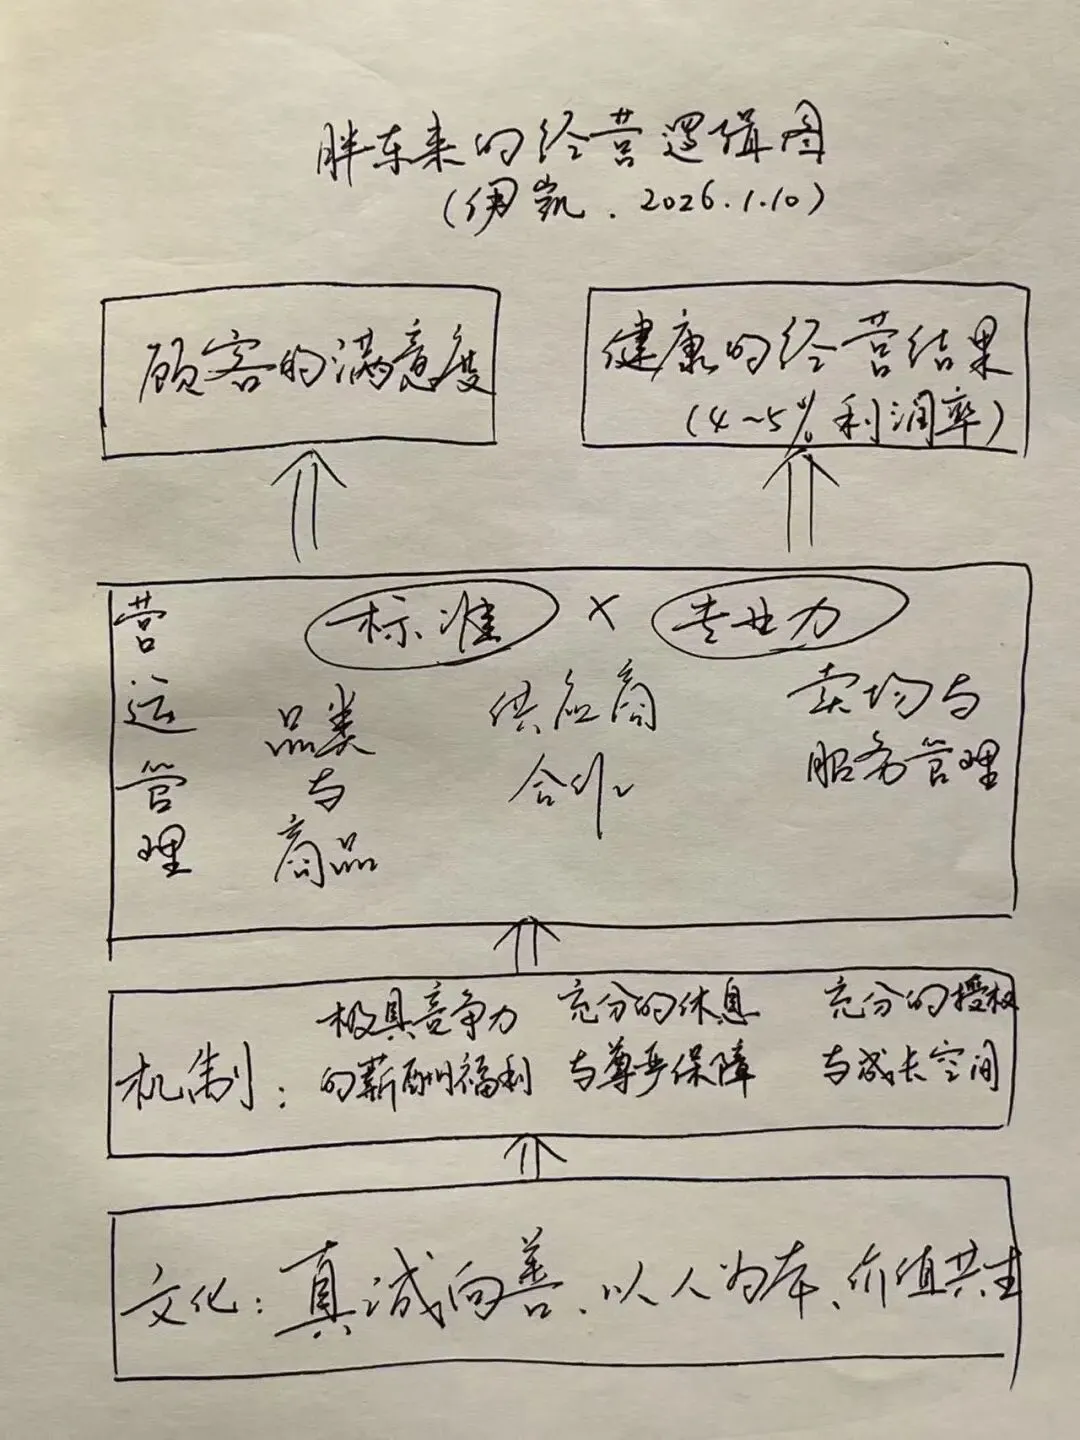 胖东来的经营逻辑图
(伊凯.2026.1.10)
顾客的满意度
健康的经营结果
(4~5%利润率)
营运管理
标准 × 专业力
品类
与
商品
供应商
合作
卖场与
服务管理
机制:
极具竞争力
的薪酬福利
充分的休息
与尊严保障
充分的授权
与成长空间
文化:真诚向善、以人为本、价值共生